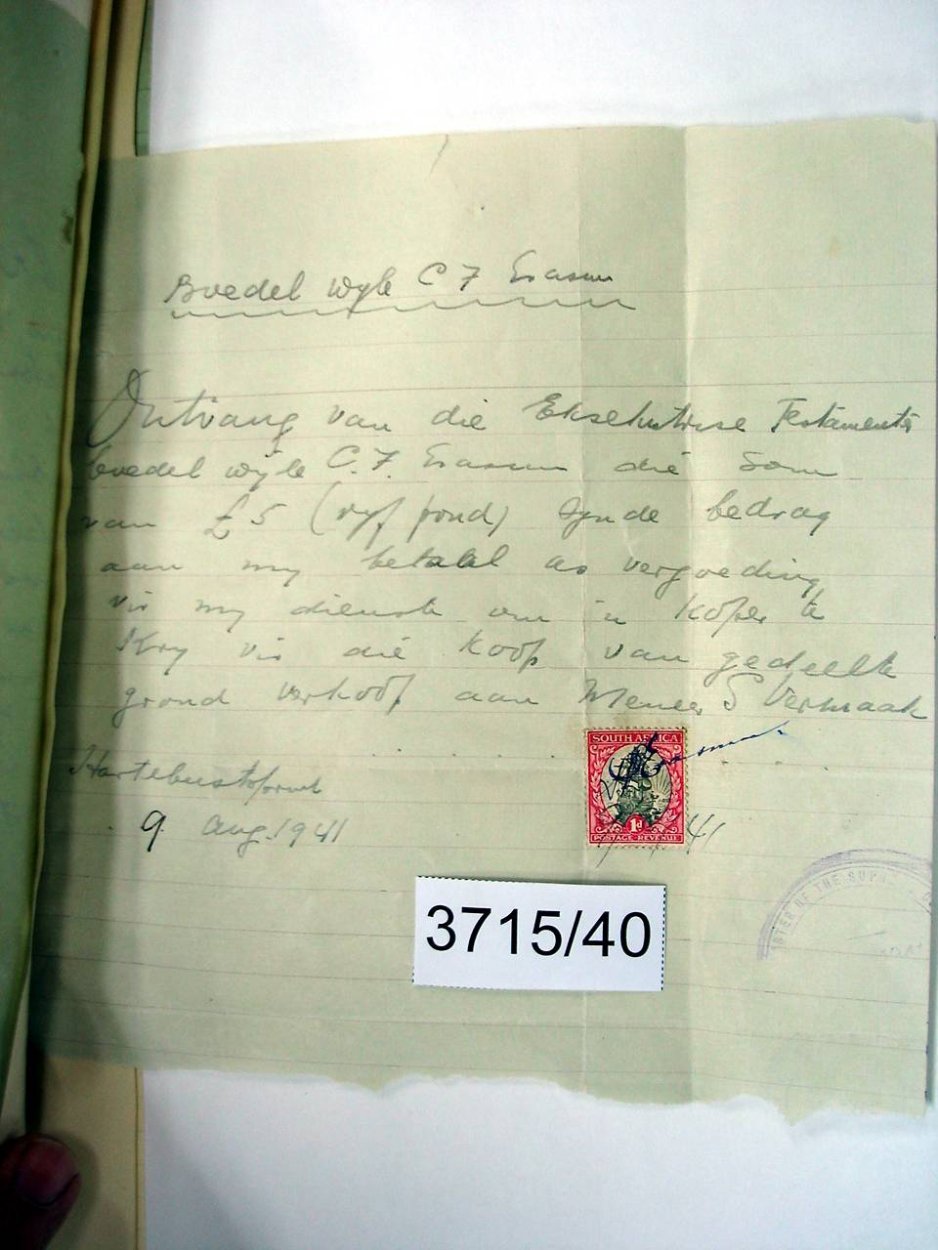 Boedel wyle C F Erasmus
Ontvang van die Eksekutrise Testamentêr
boedel wyle C.F. Erasmus die som
van £5 (vyf pond) synde bedrag
aan my betaal as vergoeding
vir my dienste om 'n koper te
kry vir die koop van gedeelte
grond verkoop aan Meneer S Vermaak
SOUTH AFRICA
Erasmus
Hartebeestefontein
1d
POSTAGE REVENUE
9 Aug. 1941
41
3715/40
MASTER OF THE SUPR